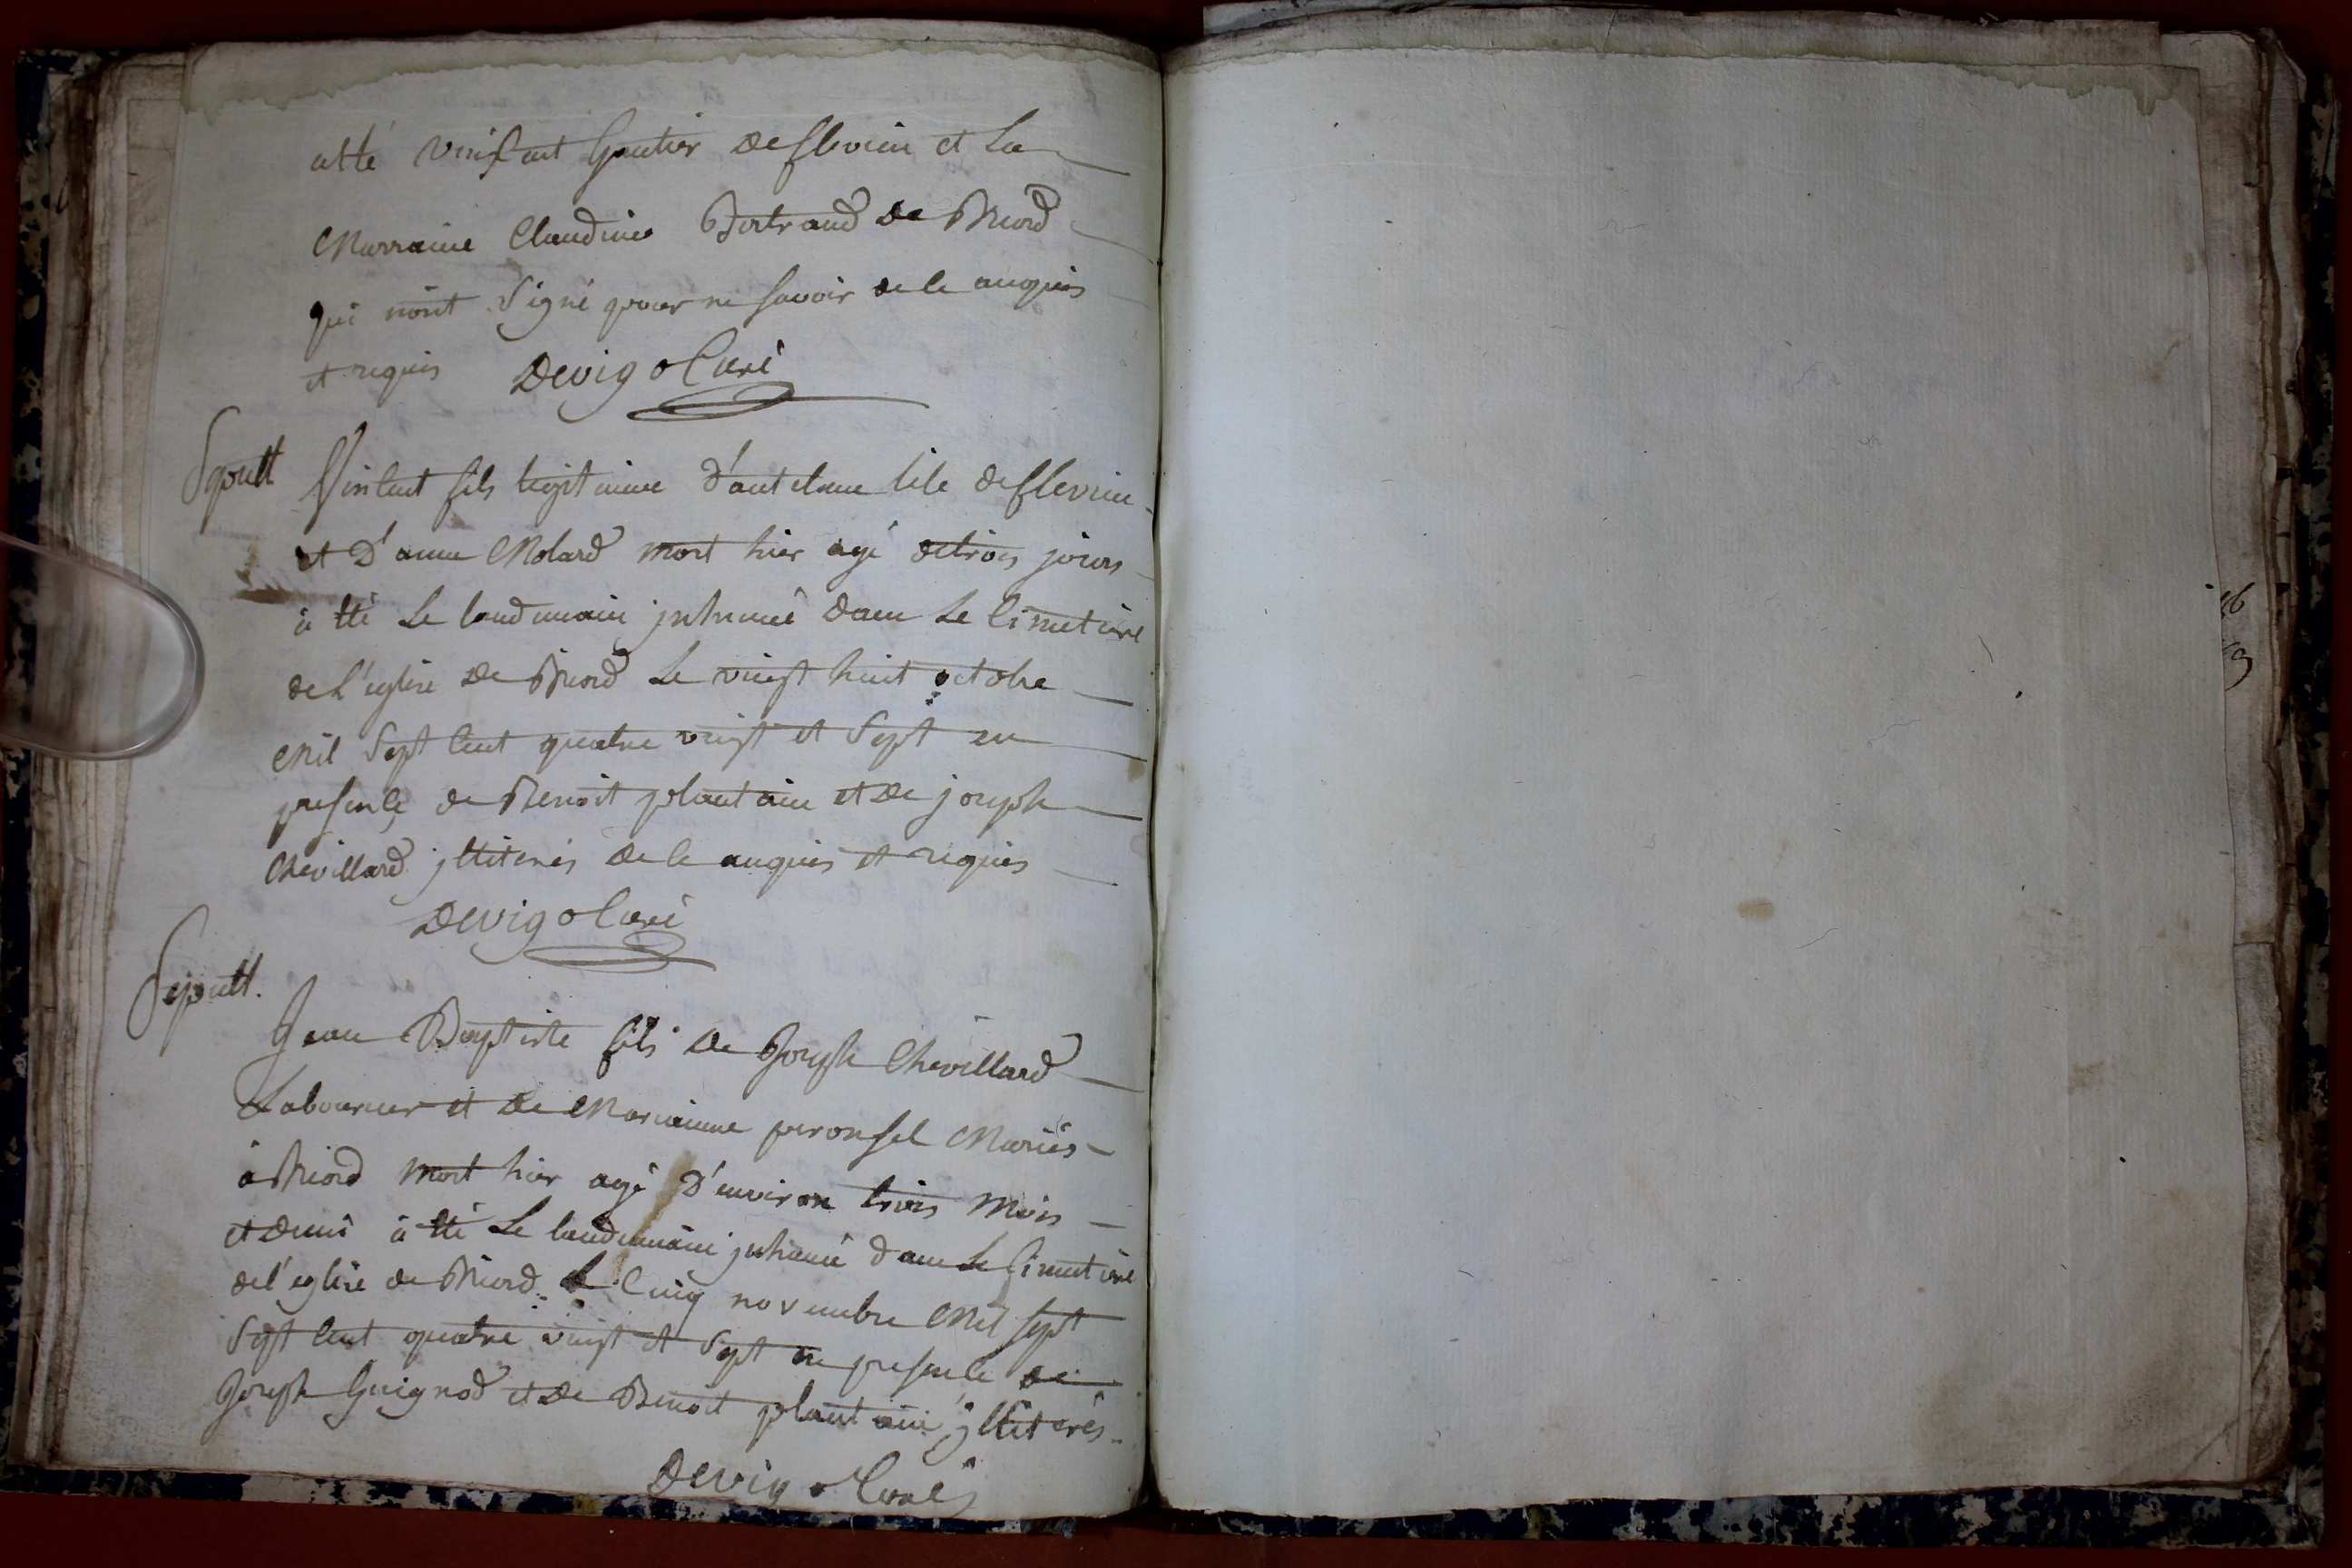 atté vinsant Gautier de flevieu et La
Marraine Claudine Bertrand de Briord
qui n'ont Signé pour ne savoir de ce anquis
et requis Devigo Curé
Sepult Vincent fils legitimme d'antelme de flevieu
et D'anne Molard mort hier agé de trois jours
à tté Le landemain jnhumé dans Le Cimetiere
de L'eglise de Briord Le vingt huit octobre
Mil Sept Cent quatre vingt et Sept en
presence de Benoit plantain et de joseph
Chevillard jlliterés de ce anquis et requis
Devigo Curé
Sepult.
Jean Baptiste fils de Joseph Chevillard
Laboureur et de Marianne peronsel Mariés
à Briord mort hier agé D'environ trois Mois
et demi à tté Le landemain jnhumé dans Le Cimetiere
de l'eglise de Briord Le Cinq novembre Mil sept
Sept Cent quatre vingt et Sept en presence de
Joseph Guignod et de Benoit plantain jlliterés
Devigo Curé